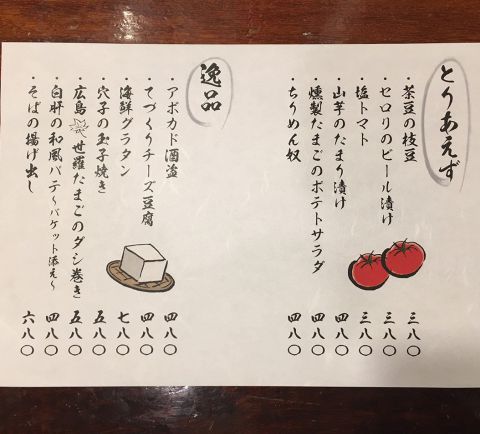 とりあえず
・茶豆の枝豆 三八〇
・セロリのビール漬け 三八〇
・塩トマト 三八〇
・山芋のたまり漬け 四八〇
・燻製たまごのポテトサラダ 四八〇
・ちりめん奴 四八〇
逸品
・アボカド酒盗 四八〇
・てづくりチーズ豆腐 四八〇
・海鮮グラタン 七八〇
・穴子の玉子焼き 五八〇
・広島 世羅たまごのダシ巻き 五八〇
・白肝の和風パテ～バケット添え～ 四八〇
・そばの揚げ出し 六八〇